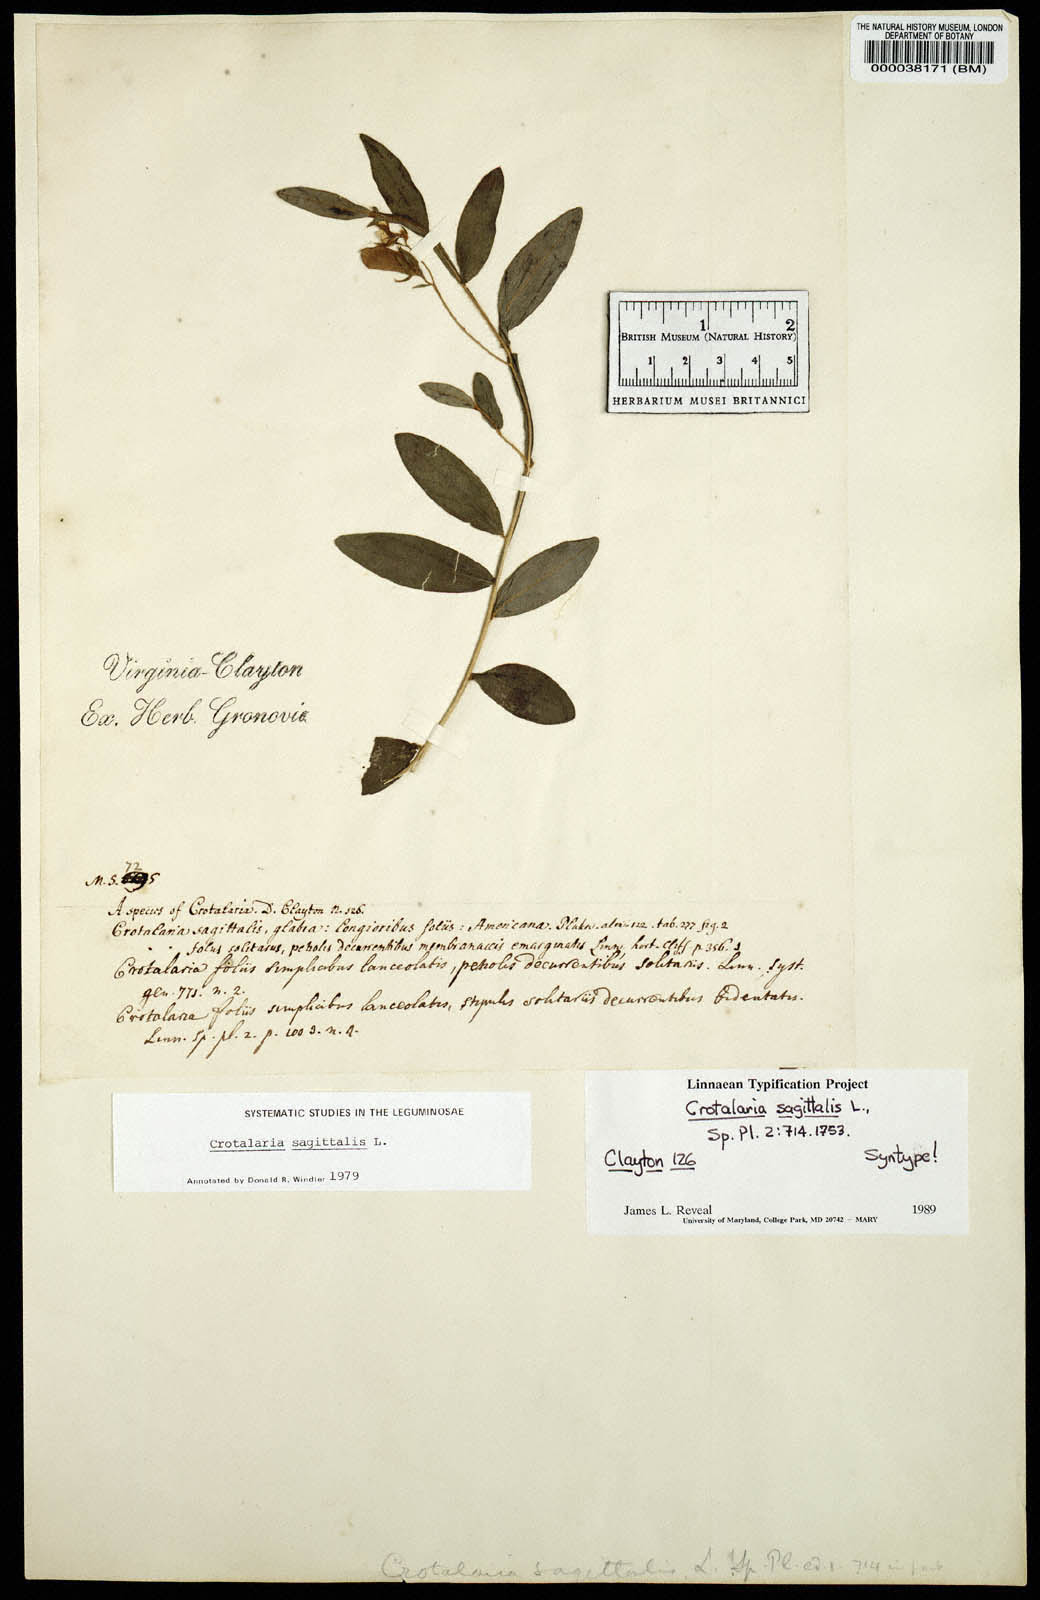 THE NATURAL HISTORY MUSEUM, LONDON
DEPARTMENT OF BOTANY
000038171 (BM)
1 2
BRITISH MUSEUM (NATURAL HISTORY)
1 2 3 4 5
HERBARIUM MUSEI BRITANNICI
Virginia-Clayton
Ex. Herb. Gronovie
72
M.S.
A species of Crotalaria. D. Clayton n. 126.
Crotalaria sagittalis, glabra: longioribus foliis: Americana. Pluken. alm. 122. tab. 277. fig. 2
foliis solitariis, petiolis decurrentibus membranaceis emarginatis Linn. hort. Cliff. p. 356.
Crotalaria foliis simplicibus lanceolatis, petiolis decurrentibus solitariis. Linn. Syst.
gen. 771. n. 2.
Crotalaria foliis simplicibus lanceolatis, stipulis solitariis decurrentibus bidentatis.
Linn. Sp. pl. 2. p. 1003. n. 4.
SYSTEMATIC STUDIES IN THE LEGUMINOSAE
Crotalaria sagittalis L.
Annotated by Donald R. Windler 1979
Linnaean Typification Project
Crotalaria sagittalis L.,
Sp. Pl. 2:714.1753.
Clayton 126 Syntype!
James L. Reveal 1989
University of Maryland, College Park, MD 20742 – MARY
Crotalaria sagittalis, L. Sp. Pl. ed. 1. 714